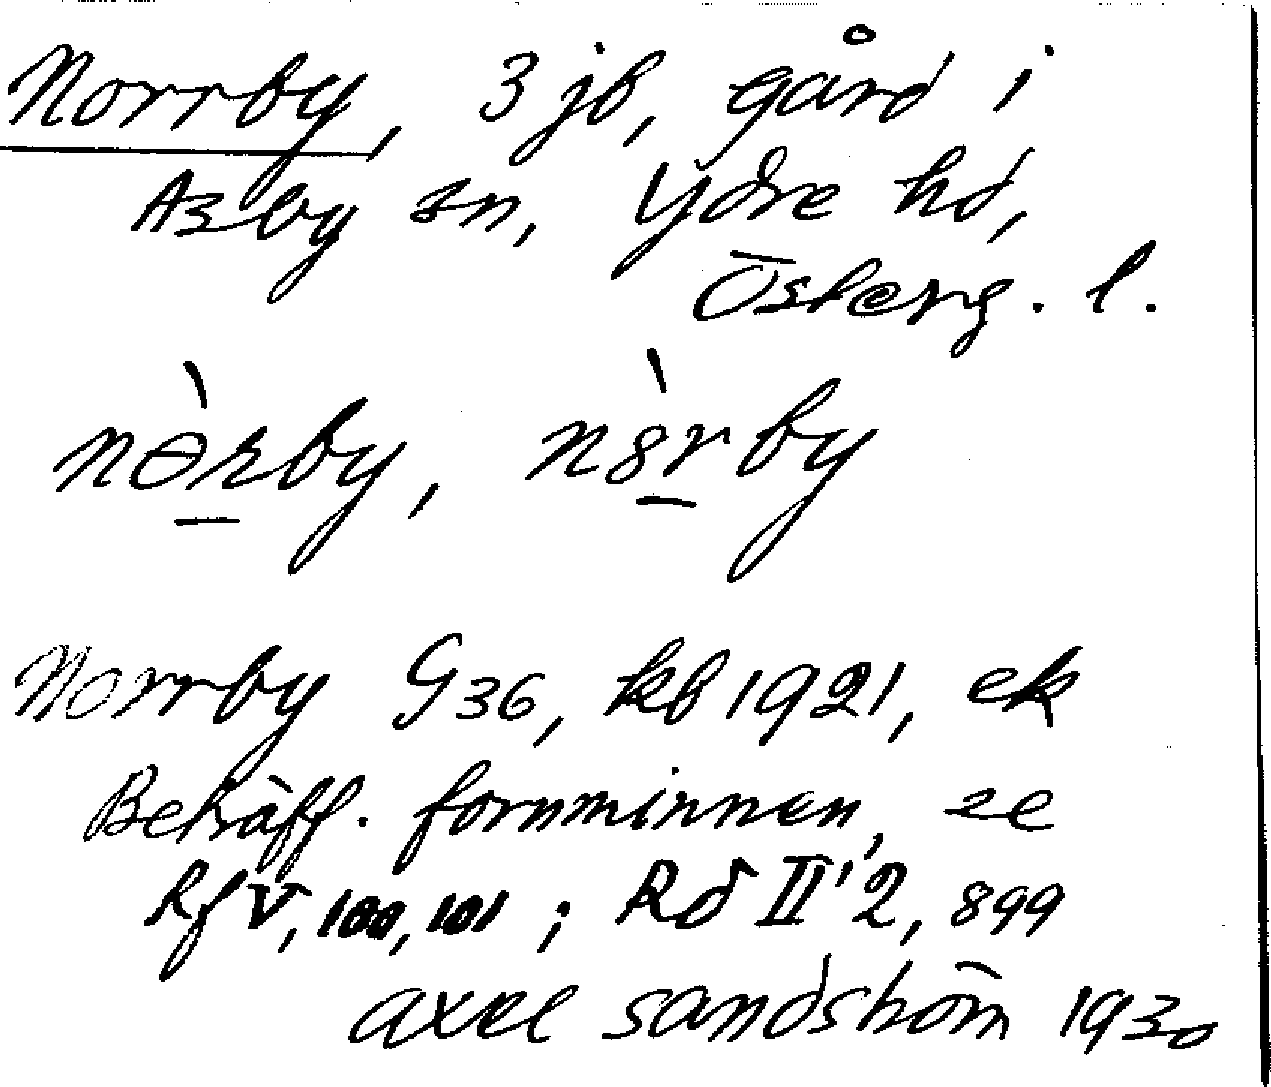 Norrby, 3 jb, gård i
Asby sn, Ydre hd,
Österg. l.
nɵ̀rby, nꝏ̀rby
Norrby G36, kb 1921, ek
Beträff. fornminnen, se
Rf V, 100, 101 ; Rd II'2, 899
Axel Sandström 1930